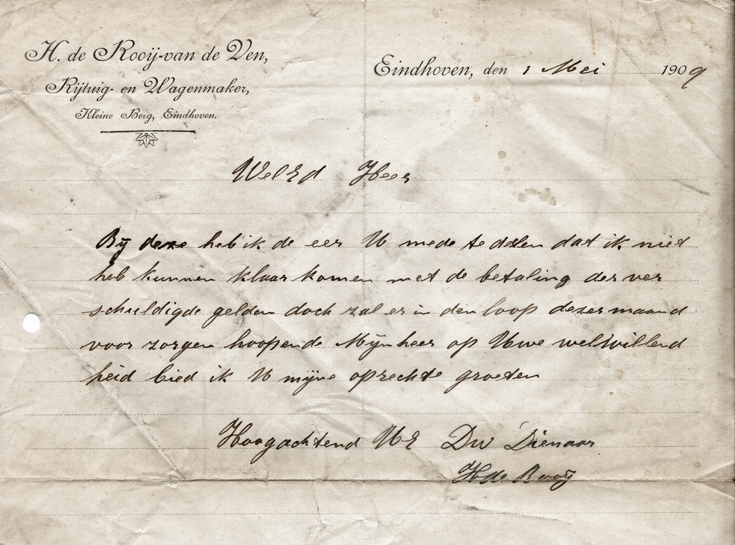 H. de Rooij-van de Ven,
Rijtuig- en Wagenmaker,
Kleine Berg, Eindhoven.
Eindhoven, den 1 Mei 1909
WelEd Heer
Bij deze heb ik de eer U mede te delen dat ik niet
heb kunnen klaar komen met de betaling der ver
schuldigde gelden doch zal er in den loop dezer maand
voor zorgen hoopende Mijnheer op Uwe welwillend
heid bied ik U mijne oprechte groeten
Hoogachtend UE Dw Dienaar
H de Rooij